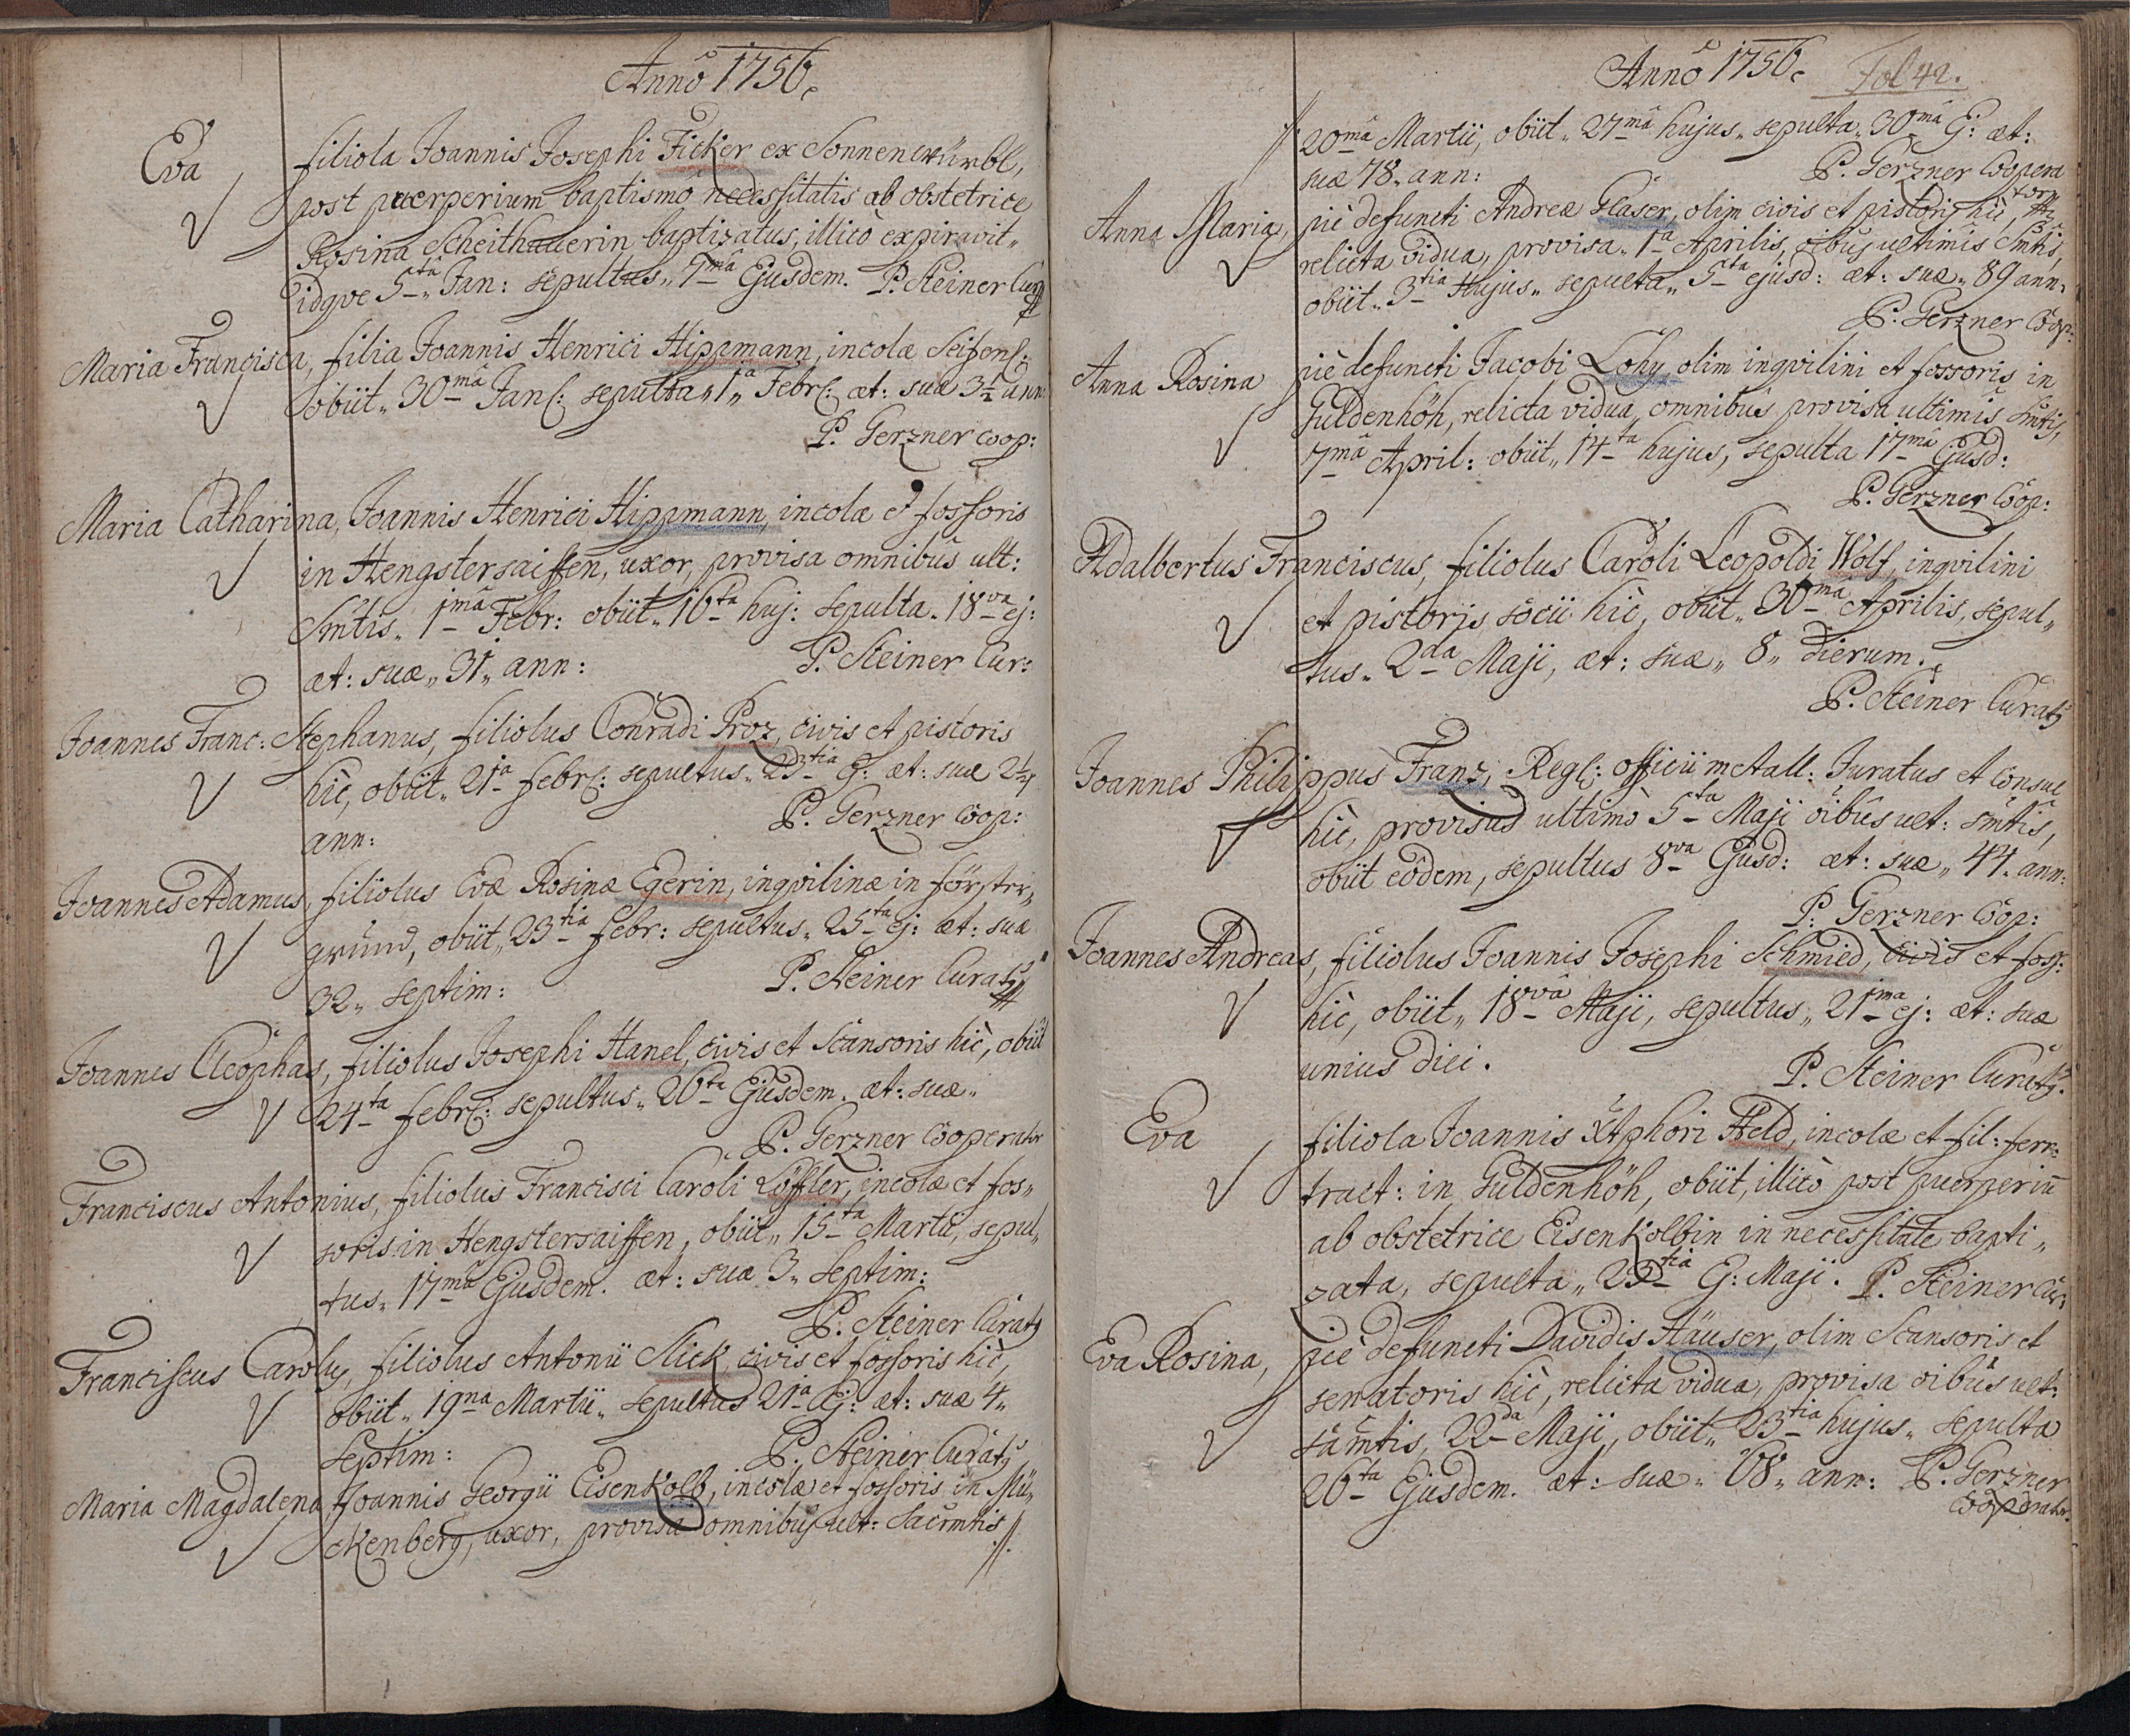 Annô 1756.
Eva filiola Joannis Josephi Ficker ex Sonnenwürbl,
post puerperium baptismô necessitatis ab obstetrice
Rosina Scheithauerin baptizatus, illicò expiravit„
idqve 5tâ„ Jan: sepultus„ 7mâ Ejusdem. P. Steiner Cur
Maria Francisca, filia Joannis Henrici Hippmann, incolæ Seifens:
obiit„ 30mâ Jan: sepulta„ 1â„ Febr: æt: suæ 3½ ann:
P. Gerzner Coop:
Maria Catharina, Joannis Henrici Hippmann, incolæ et fossoris
in Hengstersaiffen, uxor, provisa omnibus ult:
Smtis„ 1mâ Febr: obiit„ 16ta huj: sepulta„ 18va ej:
æt: suæ„ 31„ ann: P. Steiner Cur:
Joannes Franc: Stephanus, filiolus Conradi Proz, civis et pistoris
hìc, obiit„ 21â febr: sepultus„ 23tia Ej: æt: suæ 2¼
ann: P. Gerzner Coop:
Joannes Adamus, filiolus Evæ Rosinæ Egerin, inqvilinæ in förster„
grund, obiit„ 23tia febr: sepultus„ 25ta ej: æt: suæ
32„ septim: P. Steiner Curatq
Joannes Cleophas, filiolus Josephi Hanel, civis et Scansoris hìc, obiit
24ta febr: sepultus„ 26ta Ejusdem. æt: suæ„
P. Gerzner Cooperator
Franciscus Antonius, filiolus Francisci Caroli Löffler, incolæ et fos„
soris in Hengstersaiffen, obiit„ 15ta Martii, sepul„
tus„ 17mâ Ejusdem. æt: suæ 3„ Septim:
P. Steiner Curatq
Franciscus Carolq, filiolus Antonii Slick, civis et fossoris hìc,
obiit„ 19na Martii„ sepultus 21â Ej: æt: suæ 4„
Septim: P. Steiner Curatq
Maria Magdalena, Joannis Georgii Eisenkolb, incolæ et fossoris in Mü„
ckenberg, uxor, provisa omnibus ult: Sacrmtis //.
Annô 1756. Fol 42.
//: 20mâ Martii, obiit„ 27mâ hujus„ sepulta„ 30mâ Ej: æt:
suæ 78„ ann: P. Gerzner Coopera
torm
Anna Maria, piè defuncti Andreæ Glaser, olim civis et pistoris hìc,
relicta vidua, provisa„ 1â Aprilis, oibus ultimis Smtis,
obiit„ 3tia Hujus„ sepulta„ 5ta ejusd: æt: suæ„ 89 ann:
P. Gerzner Coop:
Anna Rosina piè defuncti Jacobi Lohy, olim inqvilini et fossoris in
Guldenhöh, relicta vidua, omnibus provisa ultimis Smtis,
7mâ April: obiit„ 14ta hujus, sepulta 17mâ Ejusd:
P. Gerzner Coop:
Adalbertus Franciscus, filiolus Caroli Leopoldi Wolf, inqvilini
et pistoris socii hìc, obiit„ 30mâ Aprilis, sepul„
tus„ 2da Maji, æt: suæ„ 8„ dierum.
P. Steiner Curatq
Joannes Philippus Franz, Regl: officii metall: Juratus et Consul
hìc, provisus ultimò 5ta Maji oibus ult: smtis,
obiit eôdem, sepultus 8va Ejusd: æt: suæ„ 44„ ann:
P. Gerzner Coop:
Joannes Andreas, filiolus Joannis Josephi Schmied, civis et foss:
hìc, obiit„ 18vâ Maji, sepultus„ 21ma ej: æt: suæ
unius diei. P. Steiner Curatq.
Eva filiola Joannis Xtphori Held, incolæ et fil: ferr:
tract: in Guldenhöh, obiit, illicò post puerperiu
ab obstetrice Eisenkolbin in necessitate bapti„
zata, sepulta„ 23tia Ej: Maji. P. Steiner Cur:
Eva Rosina, piè defuncti Davidis Häuser, olim Scansoris et
senatoris hìc, relicta vidua, provisa oibus ult:
sâmtis, 22da Maji, obiit„ 23tia hujus„ sepulta
26ta Ejusdem. æt: suæ„ 68„ ann: P. Gerzner
Cooperator.